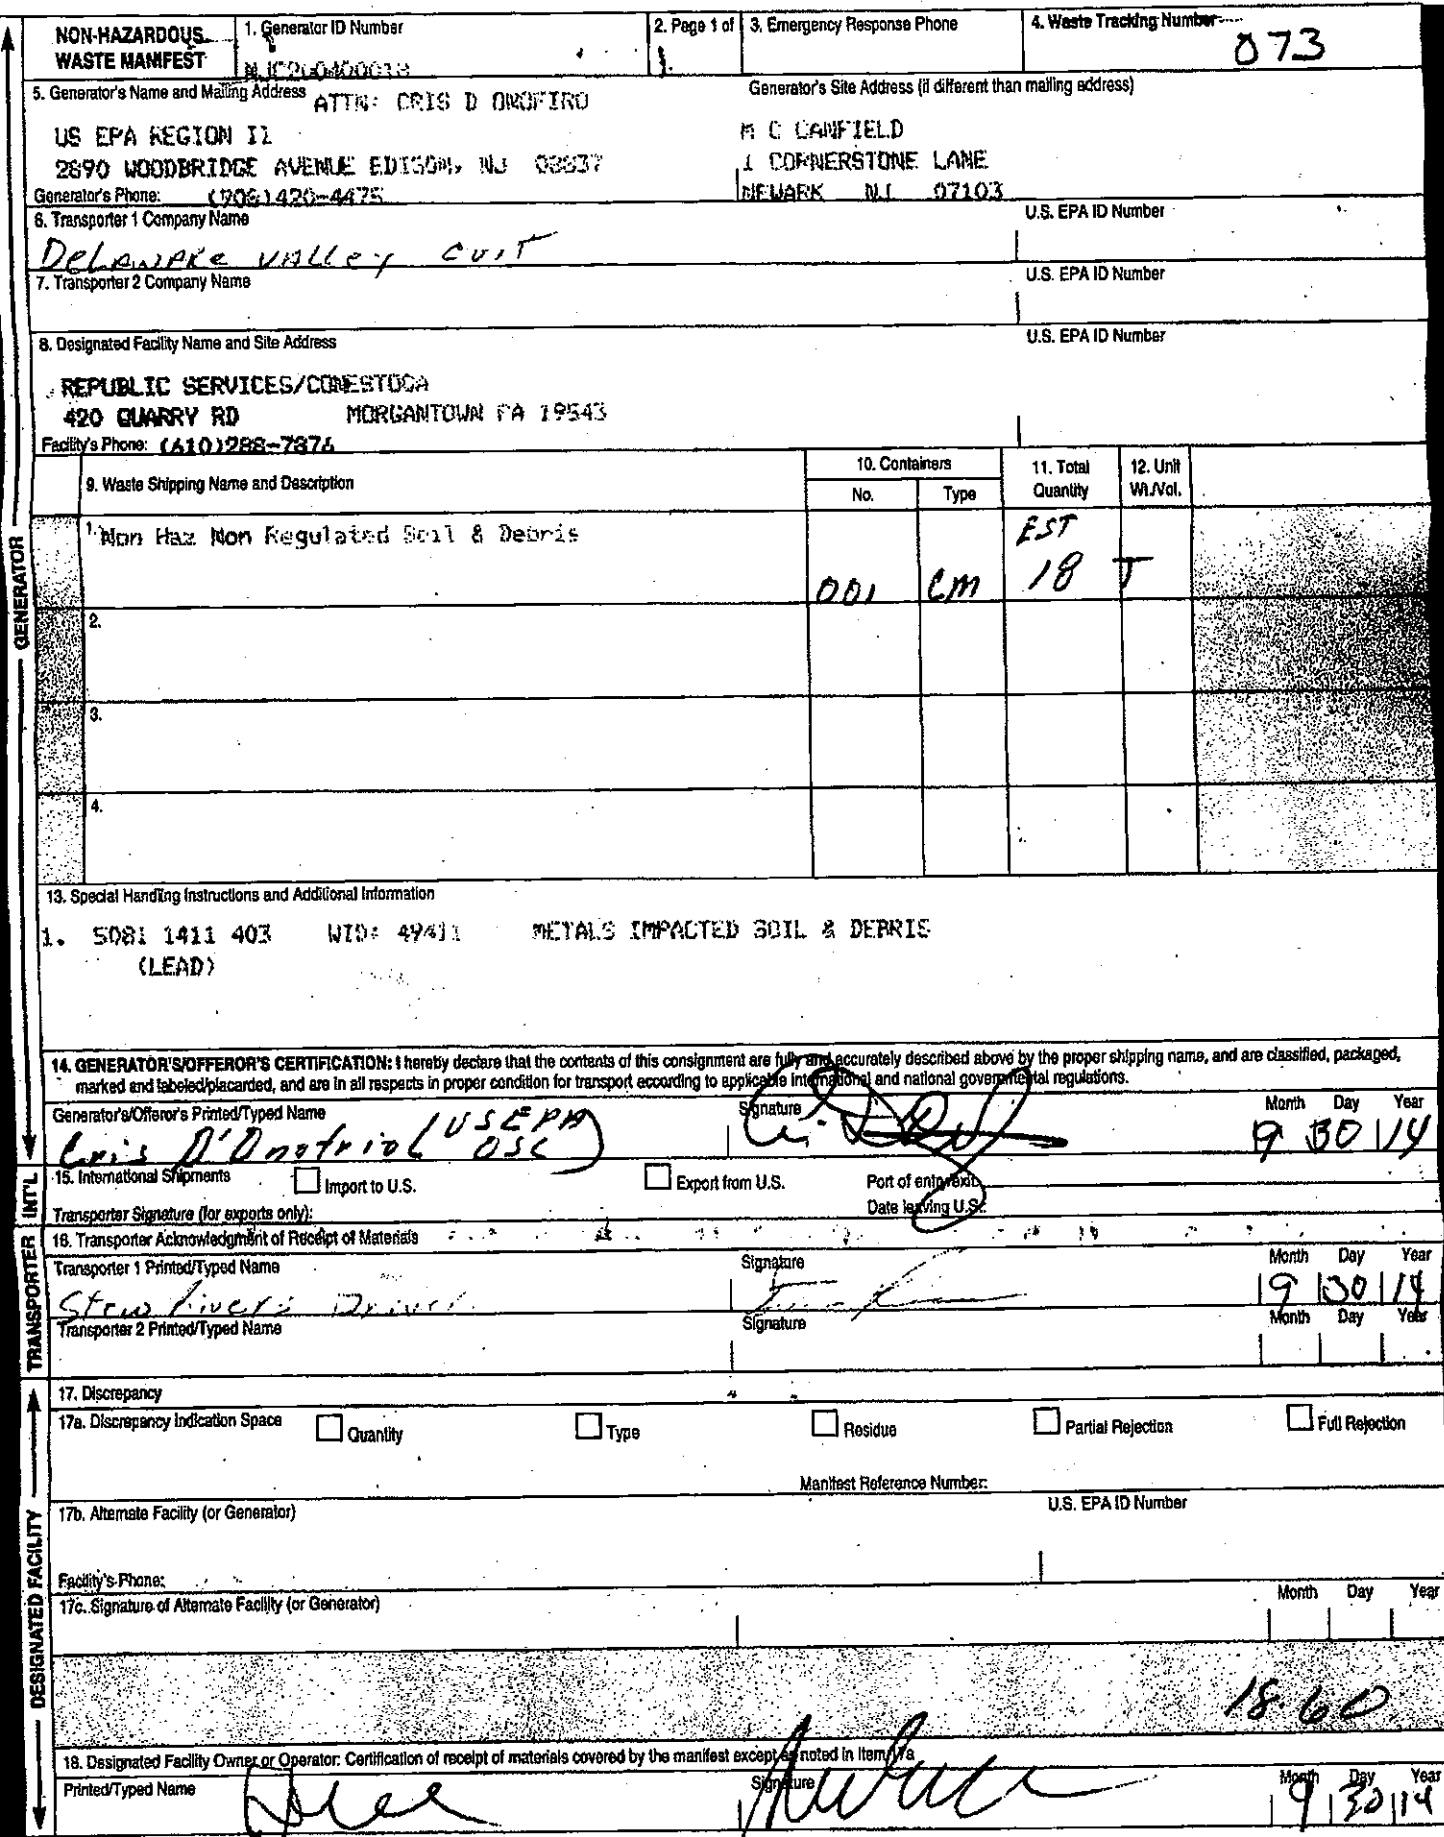 NON-HAZARDOUS WASTE MANIFEST
1. Generator ID Number
2. Page 1 of
1
3. Emergency Response Phone
4. Waste Tracking Number
073
5. Generator's Name and Mailing Address
ATTN: CRIS D ONOFIRO
US EPA REGION II
2890 WOODBRIDGE AVENUE EDISON, NJ 08837
Generator's Phone: (908)420-4475
Generator's Site Address (if different than mailing address)
M C CANFIELD
1 CORNERSTONE LANE
NEWARK NJ 07103
6. Transporter 1 Company Name
U.S. EPA ID Number
DELAWARE VALLEY
7. Transporter 2 Company Name
U.S. EPA ID Number
8. Designated Facility Name and Site Address
U.S. EPA ID Number
REPUBLIC SERVICES/CONESTOGA
420 QUARRY RD MORGANTOWN PA 19543
Facility's Phone: (610)288-7876
9. Waste Shipping Name and Description
10. Containers
No.
Type
11. Total Quantity
12. Unit Wt./Vol.
1. Non Haz Non Regulated Soil & Debris
001
CM
EST
18
T
2.
3.
4.
13. Special Handling Instructions and Additional Information
1. 5081 1411 403 WID: 49411 METALS IMPACTED SOIL & DEBRIS
(LEAD)
14. GENERATOR'S/OFFEROR'S CERTIFICATION: I hereby declare that the contents of this consignment are fully and accurately described above by the proper shipping name, and are classified, packaged,
marked and labeled/placarded, and are in all respects in proper condition for transport according to applicable international and national governmental regulations.
Generator's/Offeror's Printed/Typed Name
Signature
Month Day Year
Cris D'Onofrio (USEPA OSC)
9 30 14
15. International Shipments
Import to U.S.
Export from U.S.
Port of entry/exit:
Transporter Signature (for exports only):
Date leaving U.S.:
16. Transporter Acknowledgment of Receipt of Materials
Transporter 1 Printed/Typed Name
Signature
Month Day Year
Driver
9 30 14
Transporter 2 Printed/Typed Name
Signature
Month Day Year
17. Discrepancy
17a. Discrepancy Indication Space
Quantity
Type
Residue
Partial Rejection
Full Rejection
Manifest Reference Number:
17b. Alternate Facility (or Generator)
U.S. EPA ID Number
Facility's Phone:
17c. Signature of Alternate Facility (or Generator)
Month Day Year
18.60
18. Designated Facility Owner or Operator: Certification of receipt of materials covered by the manifest except as noted in Item 17a
Printed/Typed Name
Signature
Month Day Year
9 30 14
GENERATOR
INT'L
TRANSPORTER
DESIGNATED FACILITY